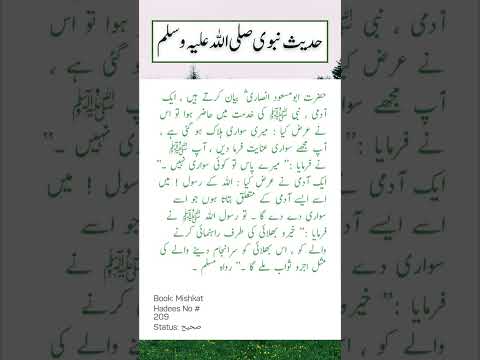 حدیث نبوی صلی اللہ علیہ وسلم
حضرت ابو مسعود انصاریؓ بیان کرتے ہیں ، ایک
آدمی ، نبی ﷺ کی خدمت میں حاضر ہوا تو اس
نے عرض کیا : میری سواری ہلاک ہو گئی ہے ،
آپ مجھے سواری عنایت فرما دیں ، آپ ﷺ
نے فرمایا :’’ میرے پاس تو کوئی سواری نہیں ۔‘‘
ایک آدمی نے عرض کیا : اللہ کے رسول ! میں
اسے ایسے آدمی کے متعلق بتاتا ہوں جو اسے
سواری دے دے گا ۔ تو رسول اللہ ﷺ نے
فرمایا :’’ خیرو بھلائی کی طرف راہنمائی کرنے
والے کو ، اس بھلائی کو سرانجام دینے والے کی
مثل اجرو ثواب ملے گا ۔‘‘ رواہ مسلم ۔
Book: Mishkat
Hadees No #
209
Status: صحیح